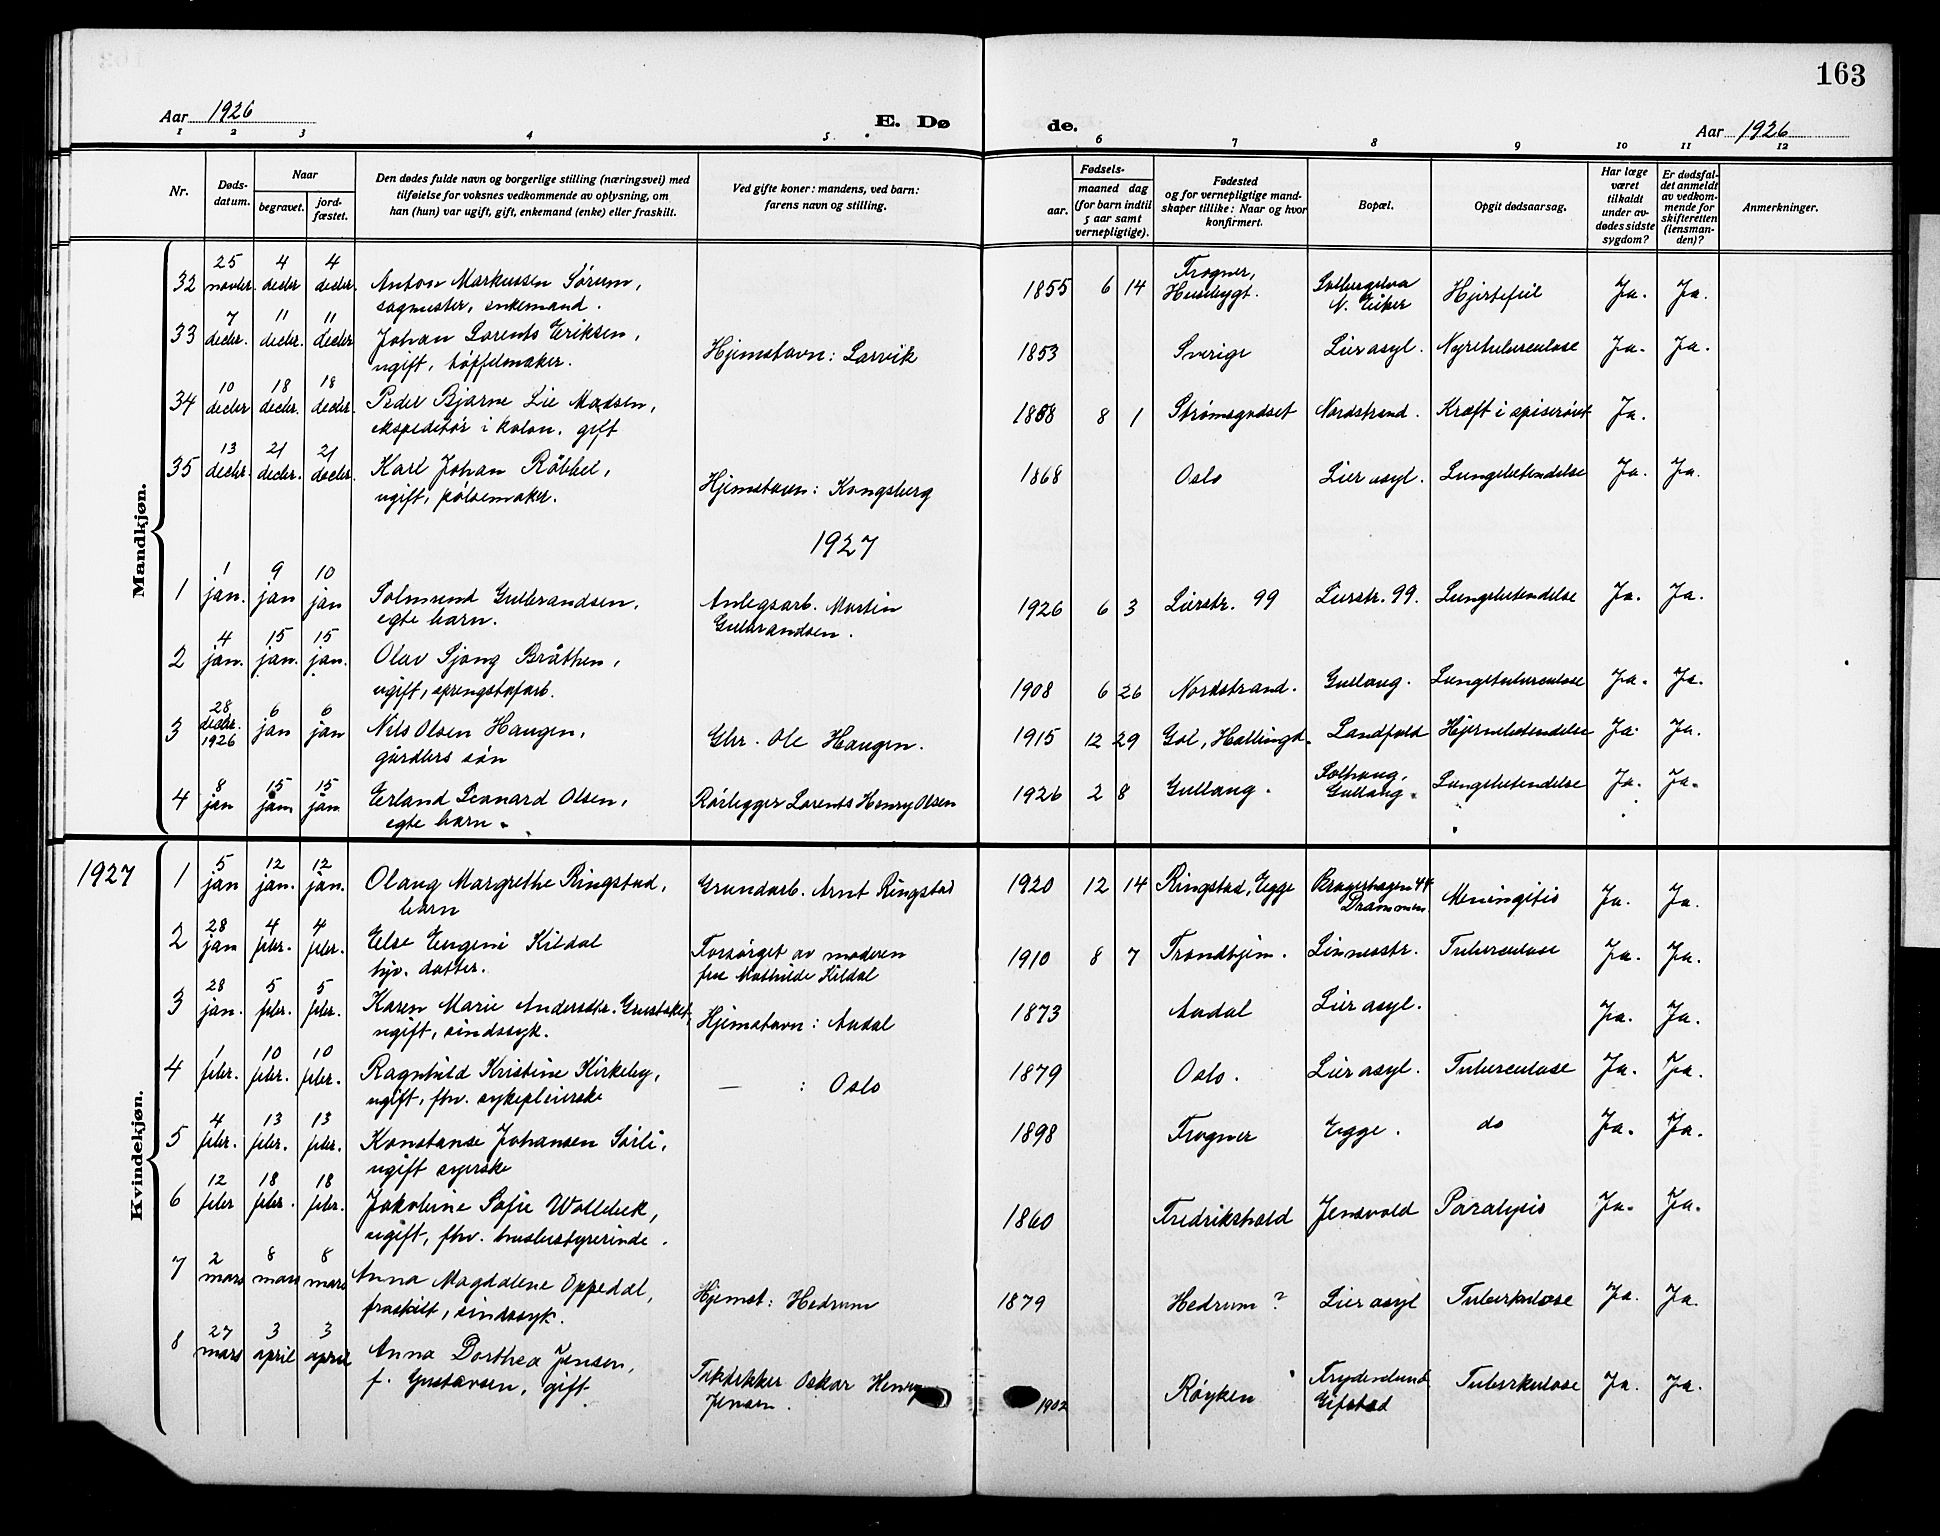 163
Aar 1926 E. Dø de. Aar 1926
1 2 3 4 5 6 7 8 9 10 11 12
Nr.
Døds-
datum.
Naar
begravet.
jord-
fæstet.
Den dødes fulde navn og borgerlige stilling (næringsvei) med
tilføielse for voksnes vedkommende av oplysning, om
han (hun) var ugift, gift, enkemand (enke) eller fraskilt.
Ved gifte koner: mandens, ved barn:
farens navn og stilling.
Fødsels-
aar.
maaned dag
(for barn indtil
5 aar samt
vernepligtige).
Fødested
og for vernepligtige mand-
skaper tillike: Naar og hvor
konfirmert.
Bopæl.
Opgit dødsaarsag.
Har læge
været
tilkaldt
under av-
dødes sidste
sygdom?
Er dødsfal-
det anmeldt
av vedkom-
mende for
skifteretten
(lensman-
den)?
Anmerkninger.
Mandkjøn.
32 25 novbr. 4 decbr 4 decbr. Anton Markussen Sørum, 1855 6 14 Frogner, Solbergelva Hjertefeil Ja. Ja.
sagmester, enkemand. N. Eiker
33 7 decbr. 11 decbr. 11 decbr Johan Lorents Eriksen, Hjemstavn: Larvik 1853 Sverige Lier asyl. Nyretuberculose Ja. Ja.
ugift, tøffelmaker.
34 10 decbr 18 decbr. 18 decbr. Peder Bjarne Lie Madsen, 8 1 Strømsgodset Nordstrand. Kræft i spiserøret Ja.
ekspeditør i kolon. gift
35 13 decbr. 21 decbr. 21 decbr. Karl Johan Hjemstavn: Kongsberg 1868 Oslo Lier asyl. Lungebetendelse Ja. Ja.
ugift, pølsemaker.
1927
1 1 jan. 9 jan 10 jan Solmund Gulbrandsen, Anlegsarb. Martin 1926 6 3 Lierstr. 99 Lierstr. 99. Lungebetendelse Ja. Ja.
egte barn. Gulbrandsen.
2 4 jan. 15 jan. 15 jan. Olav Sjong Bråthen, 1908 6 26 Nordstrand. Gullaug. Lungetuberculose Ja. Ja.
ugift, sprengstofarb.
3 28 decbr. 1926 6 jan 6 jan Nils Olsen Haugen, Gbr. Ole Haugen. 1915 12 29 Gol, Hallingd. Landfald Hjernebetendelse Ja. Ja.
gårdbrs søn
4 8 jan 15 jan 15 jan Erland Leonard Olsen, Rørlegger Lorents Henry Olsen 1926 2 8 Gullaug. Solhaug, Gullaug. Lungebetendelse Ja. Ja.
egte barn.
1927
Kvindekjøn.
1 5 jan 12 jan. 12 jan. Olaug Margrethe Ringstad, Grundarb. Arnt Ringstad 1920 12 14 Ringstad, Egge Bragerhagen 44 Drammen Meningitis Ja. Ja.
barn
2 28 jan 4 febr. 4 febr. Else Eugeni Kildal Forsørget av moderen 1910 8 7 Trondhjem. Linnesstr. Tuberculose Ja. Ja.
hjv. datter. fru Mathilde Kildal
3 28 jan. 5 febr. 5 febr. Karen Marie Andersdtr. Hjemstavn: Aadal 1873 Aadal Lier asyl. Ja. Ja.
ugift, sindssyk.
4 1 febr. 10 febr. 10 febr. Ragnhild Kristine Kirkeby, — : Oslo 1879 Oslo. Lier asyl. Tuberculose Ja. Ja.
ugift, fhv. sykepleierske
5 4 febr. 13 febr. 13 febr. Konstanse Johansen Sørli, 1898 Frogner Egge. do Ja. Ja.
ugift syerske
6 12 febr 18 febr. 18 febr. Jakobine Sofie Wollebek, 1860 Fredrikshald Jensvold Paralysis Ja. Ja.
ugift, fhv. husbestyrerinde.
7 2 mars 8 mars 8 mars Anna Magdalene Oppedal, Hjemst: Hedrum 1879 Hedrum ? Lier asyl Tuberkulose Ja. Ja.
fraskilt, sindssyk.
8 27 mars 3 april 3 april Anna Dorthea Jensen, Oskar Henry 1902 Røyken Frydenlund Tuberkulose Ja. Ja.
f. Gustavsen, gift Jensen. Gifstad